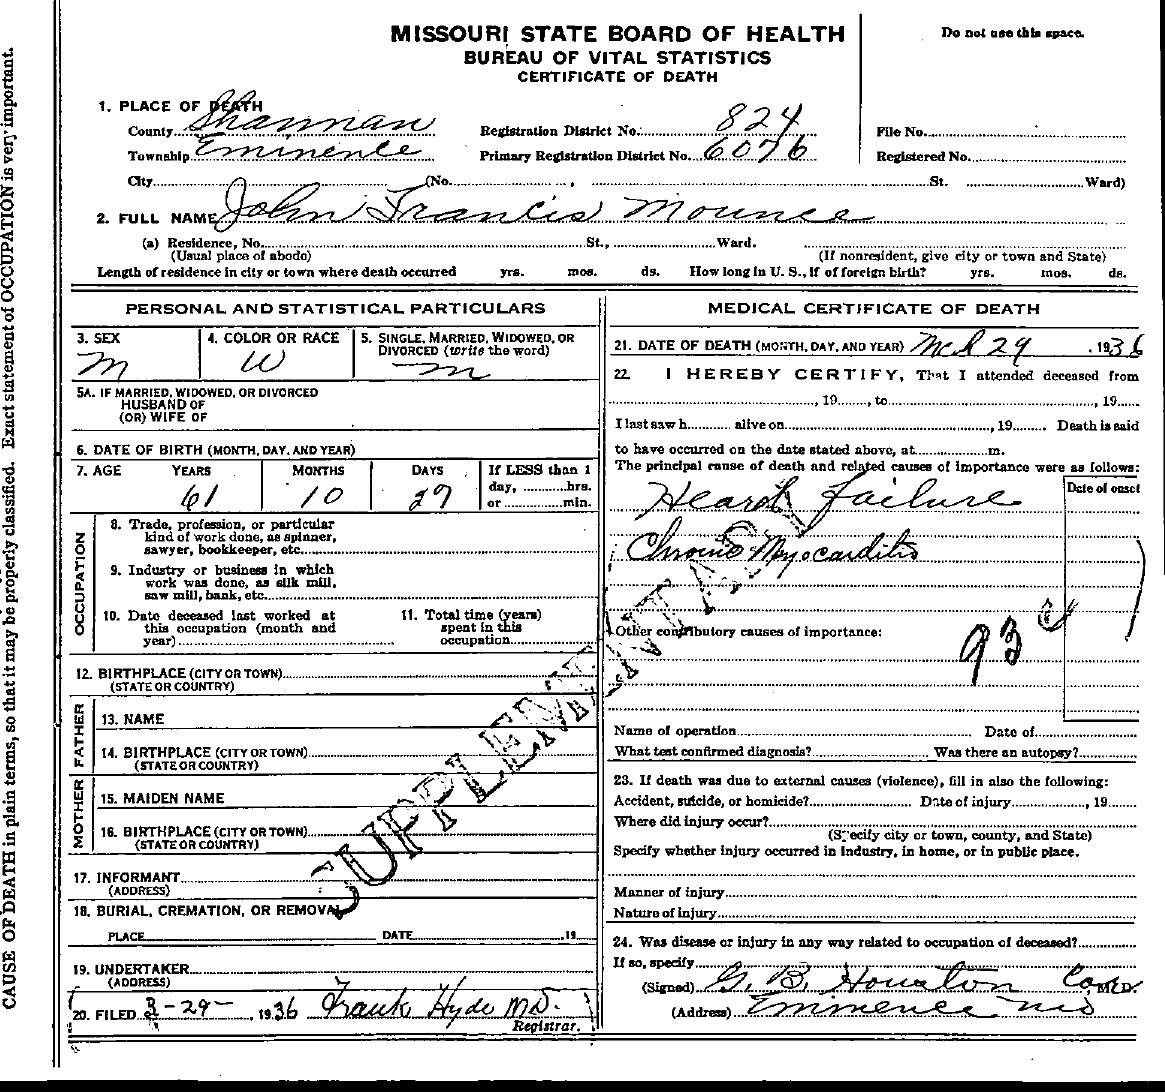 MISSOURI STATE BOARD OF HEALTH
BUREAU OF VITAL STATISTICS
CERTIFICATE OF DEATH
Do not use this space.
CAUSE OF DEATH in plain terms, so that it may be properly classified. Exact statement of OCCUPATION is very important.
1. PLACE OF DEATH
County Shannan Registration District No. 824 File No.
Township Eminence Primary Registration District No. 6076 Registered No.
City (No. , St. Ward)
2. FULL NAME John Francis Mounce
(a) Residence, No. St., Ward.
(Usual place of abode) (If nonresident, give city or town and State)
Length of residence in city or town where death occurred yrs. mos. ds. How long in U. S., if of foreign birth? yrs. mos. ds.
PERSONAL AND STATISTICAL PARTICULARS
3. SEX 4. COLOR OR RACE 5. SINGLE, MARRIED, WIDOWED, OR
DIVORCED (write the word)
M W M
5A. IF MARRIED, WIDOWED, OR DIVORCED
HUSBAND OF
(OR) WIFE OF
6. DATE OF BIRTH (MONTH, DAY, AND YEAR)
7. AGE YEARS MONTHS DAYS If LESS than 1
day, hrs.
or min.
61 10 29
OCCUPATION
8. Trade, profession, or particular
kind of work done, as spinner,
sawyer, bookkeeper, etc.
9. Industry or business in which
work was done, as silk mill,
saw mill, bank, etc.
10. Date deceased last worked at
this occupation (month and
year)
11. Total time (years)
spent in this
occupation
12. BIRTHPLACE (CITY OR TOWN)
(STATE OR COUNTRY)
FATHER
13. NAME
14. BIRTHPLACE (CITY OR TOWN)
(STATE OR COUNTRY)
MOTHER
15. MAIDEN NAME
16. BIRTHPLACE (CITY OR TOWN)
(STATE OR COUNTRY)
17. INFORMANT
(ADDRESS)
18. BURIAL, CREMATION, OR REMOVAL
PLACE DATE 19
19. UNDERTAKER
(ADDRESS)
20. FILED 3-29-, 1936 Frank Hyde MD.
Registrar.
SUPPLEMENTARY
MEDICAL CERTIFICATE OF DEATH
21. DATE OF DEATH (MONTH, DAY, AND YEAR) Mch 29 , 1936
22. I HEREBY CERTIFY, That I attended deceased from
, 19 , to , 19
I last saw h alive on , 19 Death is said
to have occurred on the date stated above, at m.
The principal cause of death and related causes of importance were as follows:
Date of onset
Heart failure
Chronic Myocarditis
Other contributory causes of importance:
93
Name of operation Date of
What test confirmed diagnosis? Was there an autopsy?
23. If death was due to external causes (violence), fill in also the following:
Accident, suicide, or homicide? Date of injury , 19
Where did injury occur?
(Specify city or town, county, and State)
Specify whether injury occurred in industry, in home, or in public place.
Manner of injury
Nature of injury
24. Was disease or injury in any way related to occupation of deceased?
If so, specify
(Signed) G. B. Houston Co, M.D.
(Address) Eminence Mo